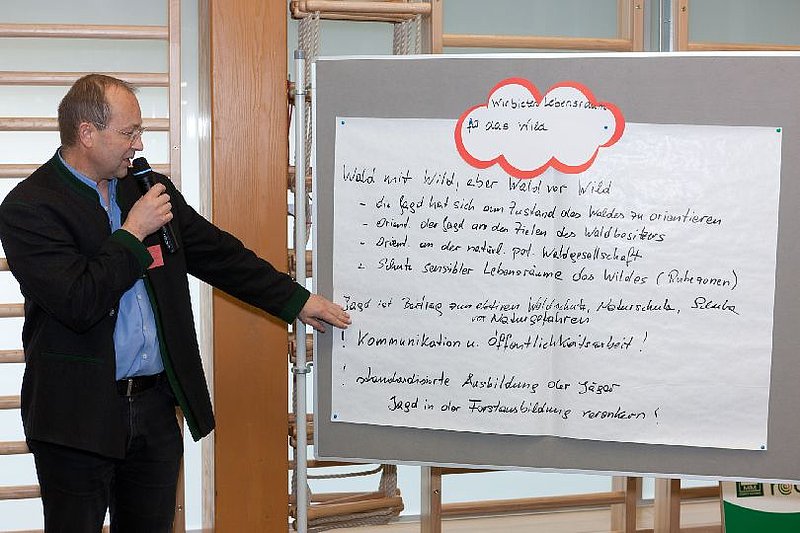 Wir bieten Lebensraum
für das Wild
Wald mit Wild, aber Wald vor Wild
- die Jagd hat sich am Zustand des Waldes zu orientieren
- Orient. der Jagd an den Zielen des Waldbesitzers
- Orient. an der natürl. pot. Waldgesellschaft
- Schutz sensibler Lebensräume des Wildes (Ruhezonen)
Jagd ist Beitrag zum aktiven Waldschutz, Naturschutz, Schutz
vor Naturgefahren
! Kommunikation u. Öffentlichkeitsarbeit!
! standardisierte Ausbildung der Jäger
Jagd in der Forstausbildung verankern!